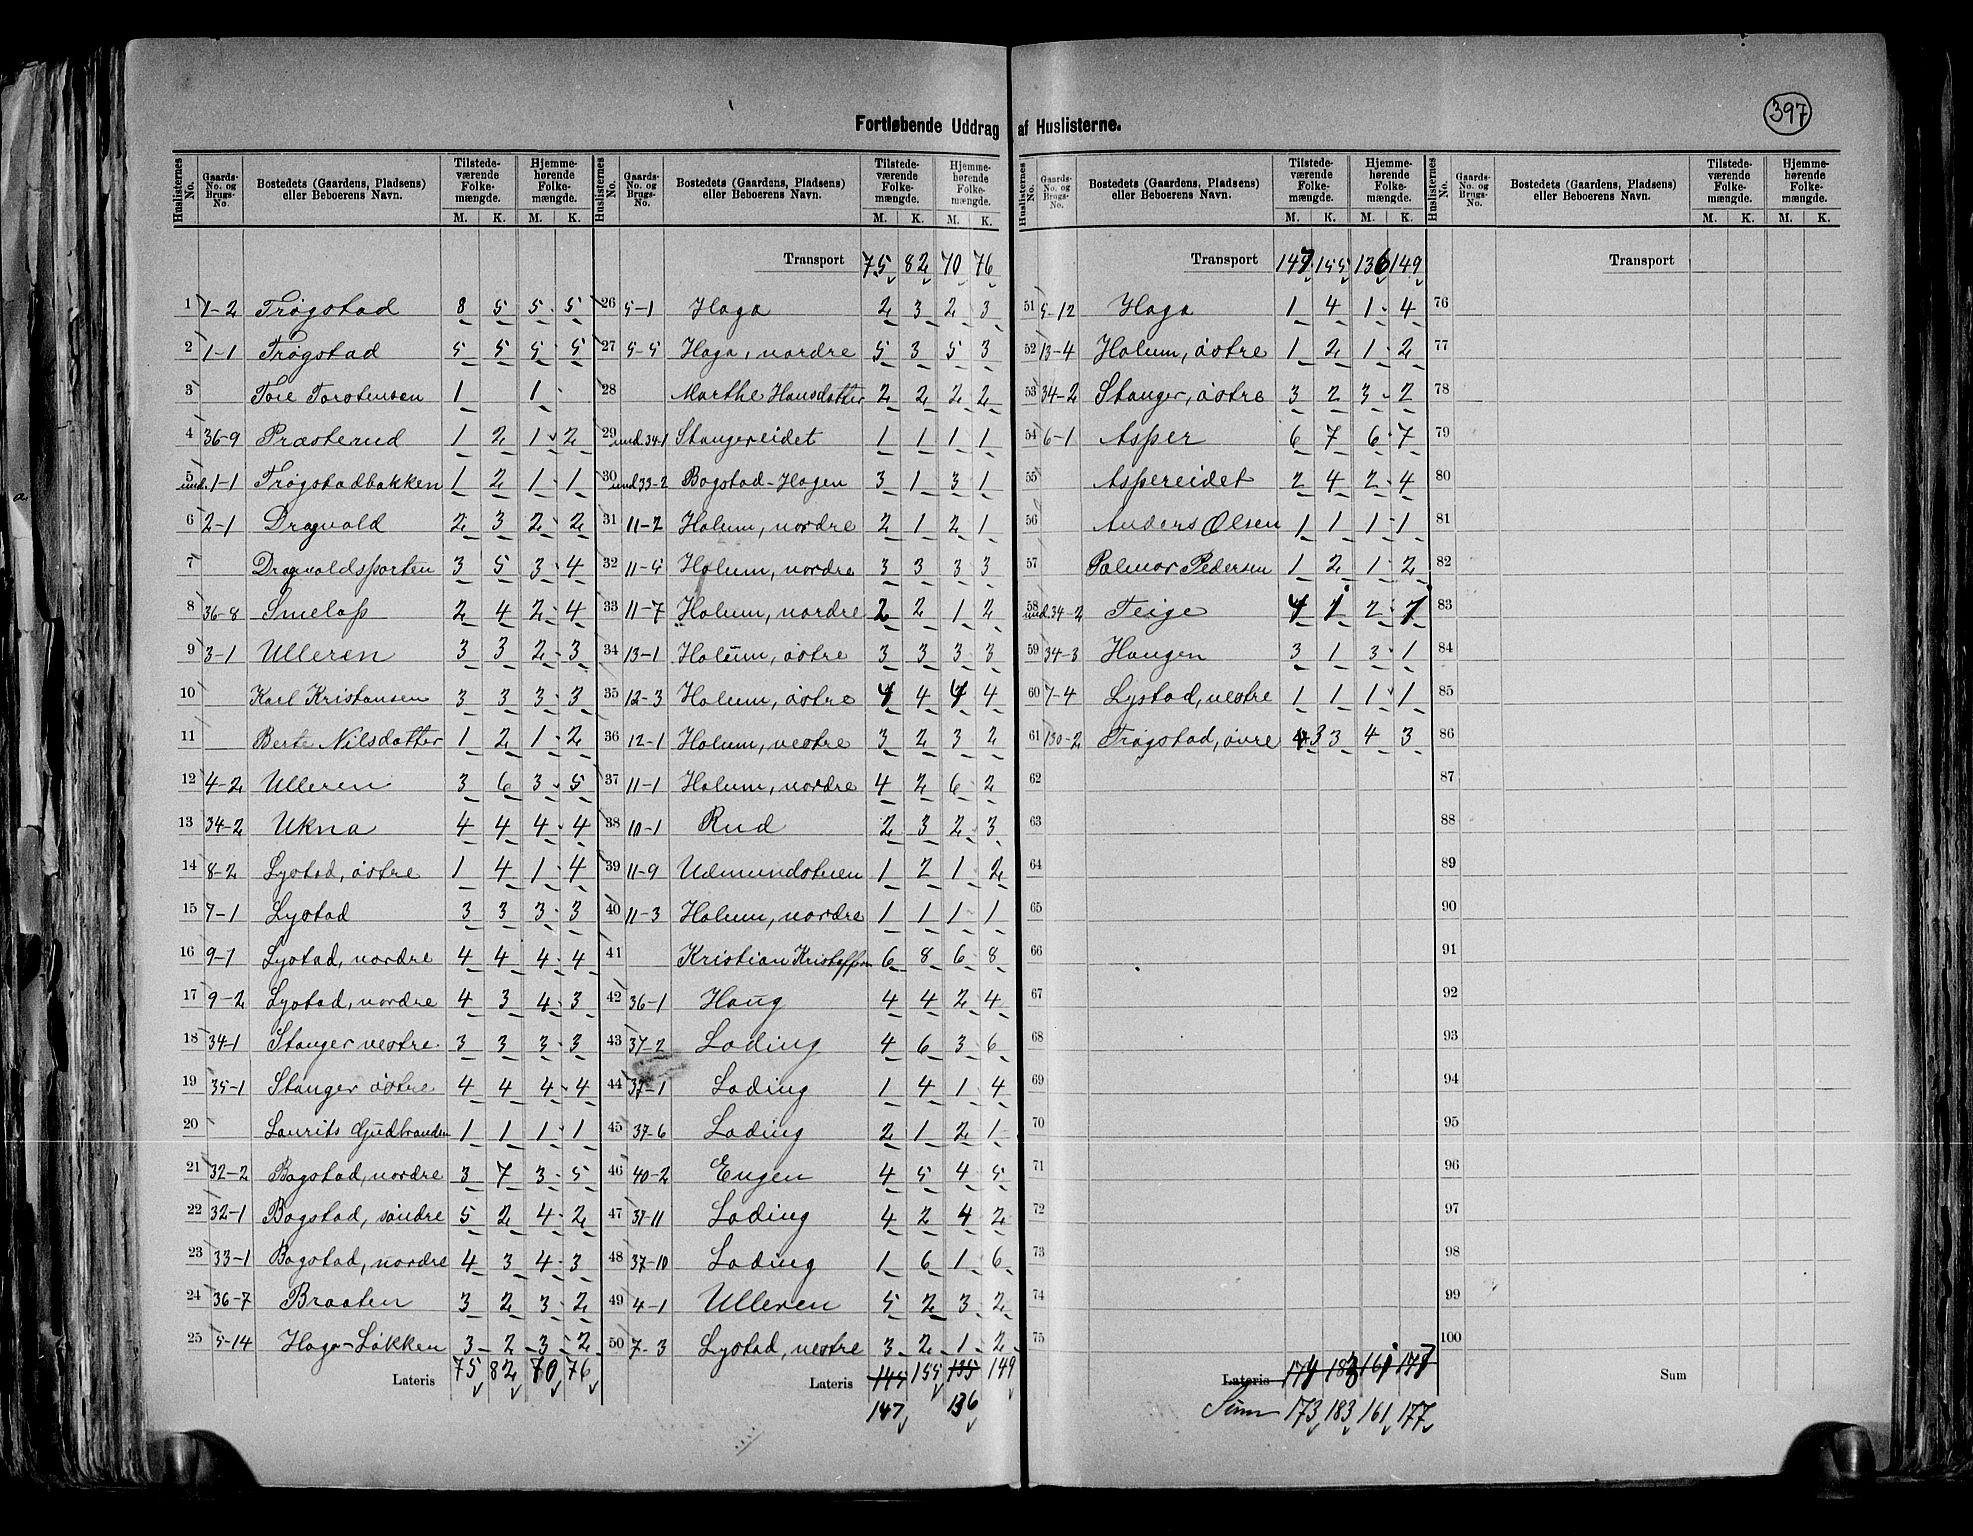 397
Fortløbende Uddrag af Huslisterne.
Huslisternes No. Gaards-No. og Brugs-No. Bostedets (Gaardens, Pladsens) eller Beboerens Navn. Tilstedeværende Folkemængde. M. K. Hjemmehørende Folkemængde. M. K.
1 1-2 Trøgstad 8 5 5 5
2 1-1 Trøgstad 5 5 5 5
3 Tore Torstensen 1 1
4 36-9 Præsterud 1 2 1 2
5 und. 1-1 Trøgstadbakken 1 2 1 1
6 2-1 Dragvold 2 3 2 2
7 Dragvoldsporten 3 5 3 4
8 36-8 Smeløp 2 4 2 4
9 3-1 Ulleren 3 3 2 3
10 Karl Kristansen 3 3 3 3
11 Berte Nilsdatter 1 2 1 2
12 4-2 Ulleren 3 6 3 5
13 34-2 Ukna 4 4 4 4
14 8-2 Lystad, østre 1 4 1 4
15 7-1 Lystad 3 3 3 3
16 9-1 Lystad, nordre 4 4 4 4
17 9-2 Lystad, nordre 4 3 4 3
18 34-1 Stanger vestre 3 3 3 3
19 35-1 Stanger østre 4 4 4 4
20 Laurits Gudbrandsen 1 1 1 1
21 32-2 Bagstad, nordre 3 7 3 5
22 32-1 Bogstad, søndre 5 2 4 2
23 33-1 Bagstad, nordre 4 3 4 3
24 36-7 Braaten 3 2 3 2
25 5-14 Haga-Løkken 3 2 3 2
Lateris 75 82 70 76
Huslisternes No. Gaards-No. og Brugs-No. Bostedets (Gaardens, Pladsens) eller Beboerens Navn. Tilstedeværende Folkemængde. M. K. Hjemmehørende Folkemængde. M. K.
Transport 75 82 70 76
26 5-1 Haga 2 3 2 3
27 5-5 Haga, nordre 5 3 5 3
28 Marthe Hansdatter 2 2 2 2
29 und. 34-1 Stangereidet 1 1 1 1
30 und 33-2 Bogstad-Hagen 3 1 3 1
31 11-2 Holum, nordre 2 1 2 1
32 11-5 Holum, nordre 3 3 3 3
33 11-7 Holum, nordre 2 2 1 2
34 13-1 Holum, østre 3 3 3 3
35 12-3 Holum, østre 4 4 4 4
36 12-1 Holum, vestre 3 2 3 2
37 11-1 Holum, nordre 4 2 6 2
38 10-1 Rud 2 3 2 3
39 11-9 Udmundstuen 1 2 1 2
40 11-3 Holum, nordre 1 1 1 1
41 Kristian Kristoffsen 6 8 6 8
42 36-1 Haug 4 4 2 4
43 37-2 Lading 4 6 3 6
44 37-1 Lading 1 4 1 4
45 37-6 Lading 2 1 2 1
46 40-2 Engen 4 5 4 5
47 37-11 Lading 4 2 4 2
48 37-10 Lading 1 6 1 6
49 4-1 Ulleren 5 2 3 2
50 7-3 Lystad, vestre 3 2 1 2
Lateris 145 155 135 149
147 136
Huslisternes No. Gaards-No. og Brugs-No. Bostedets (Gaardens, Pladsens) eller Beboerens Navn. Tilstedeværende Folkemængde. M. K. Hjemmehørende Folkemængde. M. K.
Transport 147 155 136 149
51 5-12 Haga 1 4 1 4
52 13-4 Holum, østre 1 2 1 2
53 34-2 Stanger, østre 3 2 3 2
54 6-1 Asper 6 7 6 7
55 Aspereidet 2 4 2 4
56 Anders Olsen 1 1 1 1
57 Palmar Pedersen 1 2 1 2
58 und. 34-2 Teige 4 1 2 1
59 34-3 Haugen 3 1 3 1
60 7-4 Lystad, vestre 1 1 1 1
61 130-2 Trøgstad, øvre 3 3 4 3
62
63
64
65
66
67
68
69
70
71
72
73
74
75
Lateris
Sum 173 183 161 177
Huslisternes No. Gaards-No. og Brugs-No. Bostedets (Gaardens, Pladsens) eller Beboerens Navn. Tilstedeværende Folkemængde. M. K. Hjemmehørende Folkemængde. M. K.
Transport
76
77
78
79
80
81
82
83
84
85
86
87
88
89
90
91
92
93
94
95
96
97
98
99
100
Sum